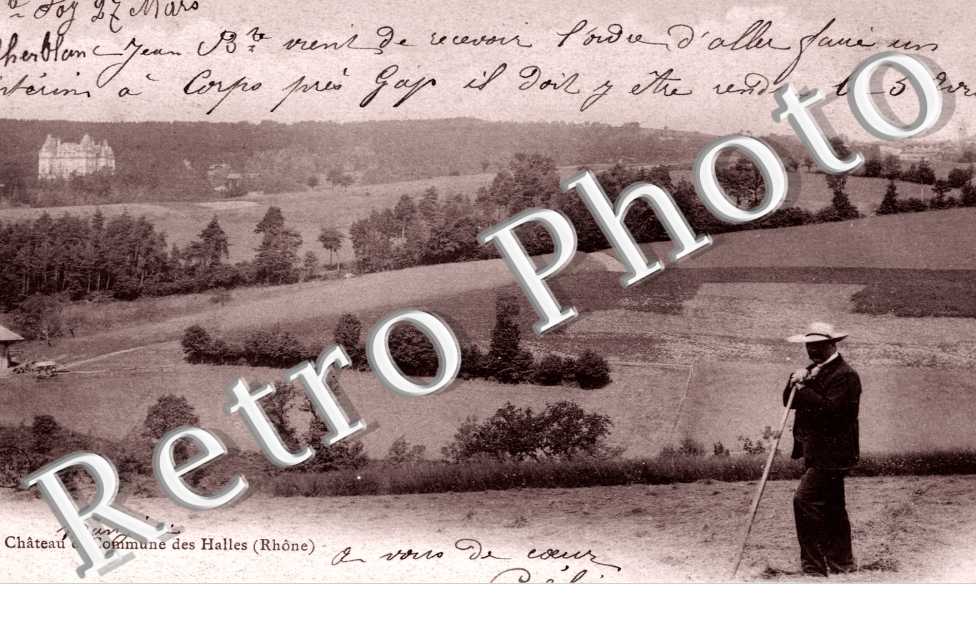 Foy 27 Mars
Cherblanc Jean Bte vient de recevoir l'ordre d'aller faire un
intérim à Corps près Gap il doit y être rendu le 5 Avri
Retro Photo
Château et Commune des Halles (Rhône)
à vous de cœur